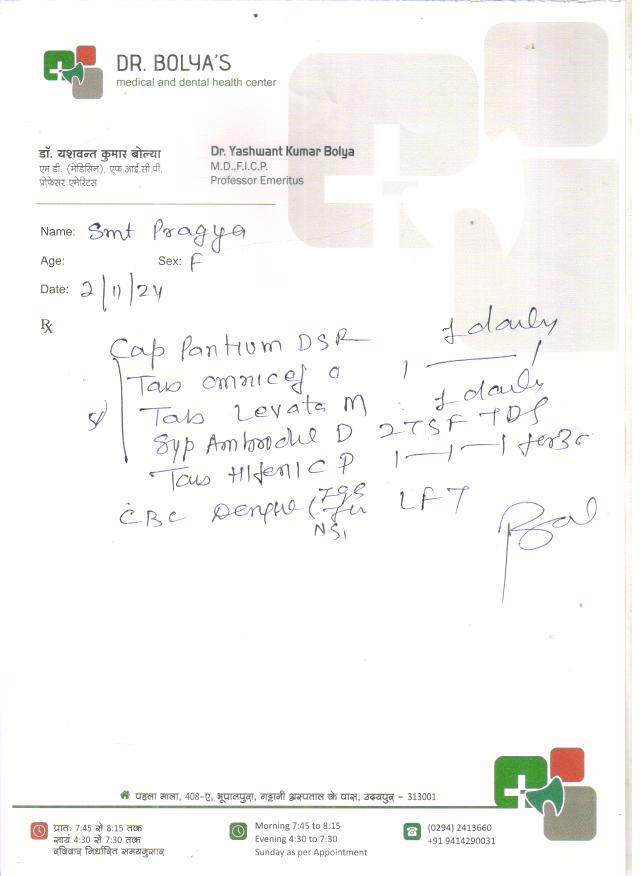 DR. BOLYA'S
medical and dental health center
डॉ. यशवन्त कुमार बोल्या
एम.डी. (मेडिसिन), एफ.आई.सी.पी.
प्रोफेसर एमेरिटस
Dr. Yashwant Kumar Bolya
M.D.,F.I.C.P.
Professor Emeritus
Name: Smt Pragya
Age: Sex: F
Date: 2/11/24
Rx
Cap Pantium DSR 1 daily
Tab Omnicef O 1 — 1
Tab Levata M 1 daily
Syp Ambrodil D 2 TSF TDS
Tab Hifenac P 1—1—1
CBC Dengue ( LFT
NS1
पहला माला, 408-ए, भूपालपुरा, गट्टानी अस्पताल के पास, उदयपुर - 313001
प्रातः 7:45 से 8:15 तक
सायं 4:30 से 7:30 तक
रविवार निर्धारित समयनुसार
Morning 7:45 to 8:15
Evening 4:30 to 7:30
Sunday as per Appointment
(0294) 2413660
+91 9414290031